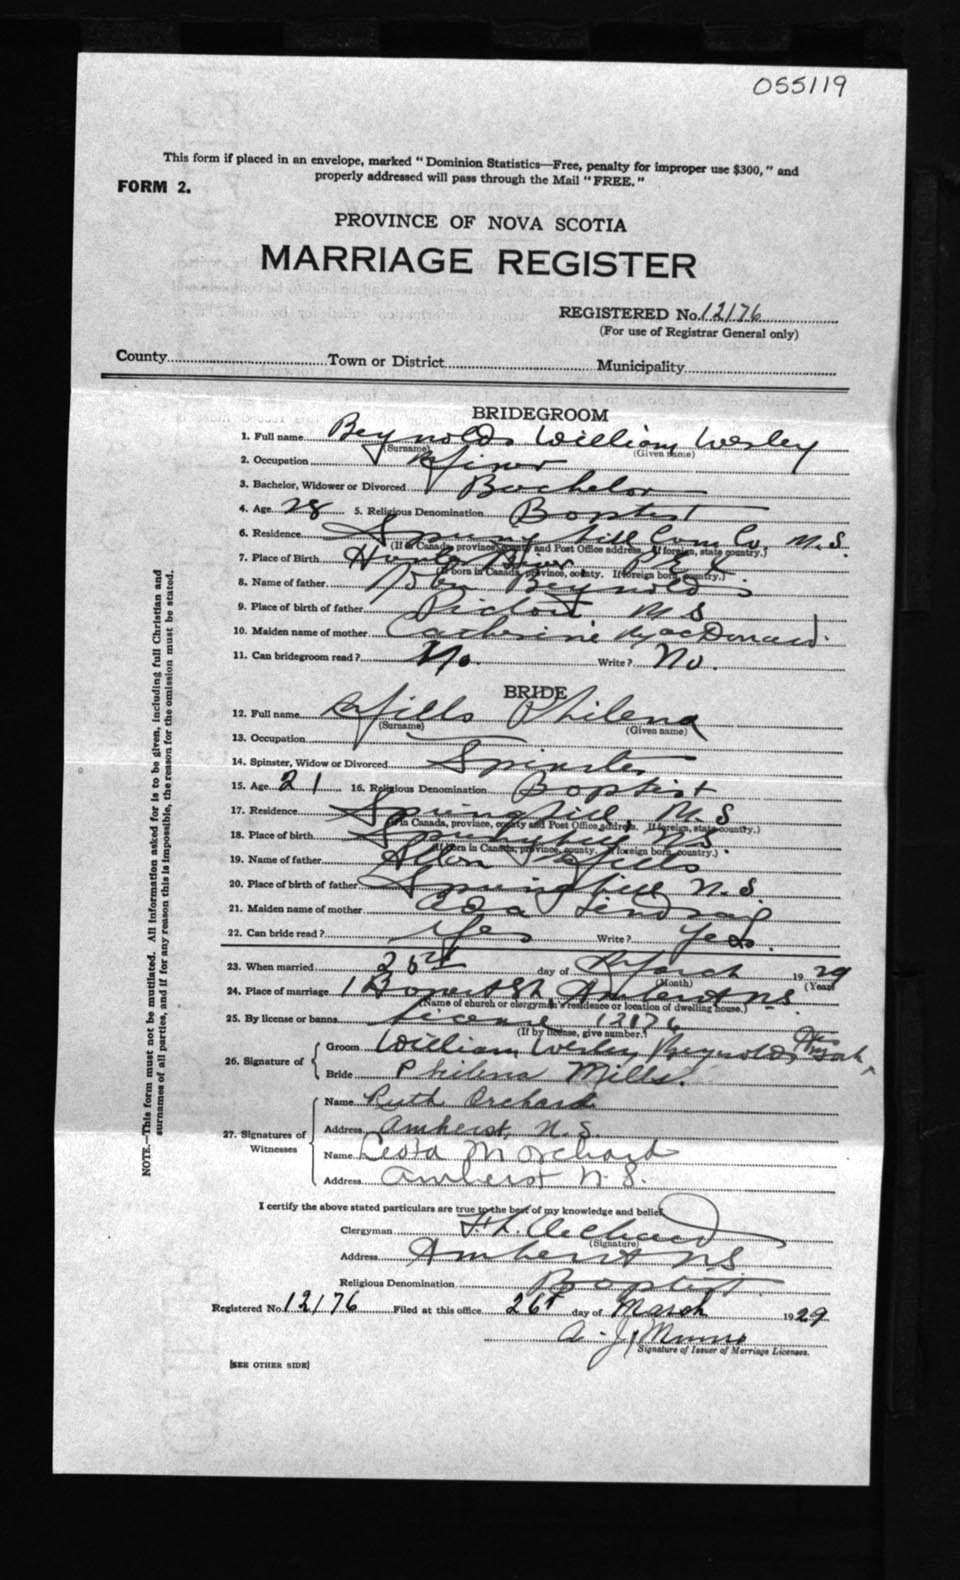 055119
This form if placed in an envelope, marked "Dominion Statistics—Free, penalty for improper use $300," and
properly addressed will pass through the Mail "FREE."
FORM 2.
PROVINCE OF NOVA SCOTIA
MARRIAGE REGISTER
REGISTERED No. 12176
(For use of Registrar General only)
County Town or District Municipality
BRIDEGROOM
1. Full name Reynolds William Wesley
(Surname) (Given name)
2. Occupation Miner
3. Bachelor, Widower or Divorced Bachelor
4. Age 28 5. Religious Denomination Baptist
6. Residence Springhill Cum Co. N.S.
(If in Canada, province, county and Post Office address. If foreign, state country.)
7. Place of Birth Hunter River P.E.I.
(If born in Canada, province, county. If foreign born, country.)
8. Name of father John Reynolds
9. Place of birth of father Pictou N S
10. Maiden name of mother Catherine MacDonald
11. Can bridegroom read? No. Write? No.
BRIDE
12. Full name Mills Philena
(Surname) (Given name)
13. Occupation
14. Spinster, Widow or Divorced Spinster
15. Age 21 16. Religious Denomination Baptist
17. Residence Springhill N.S
(If in Canada, province, county and Post Office address. If foreign, state country.)
18. Place of birth Springhill N.S.
(If born in Canada, province, county. If foreign born, country.)
19. Name of father Mills
20. Place of birth of father Springhill N.S.
21. Maiden name of mother Ada Lindsay
22. Can bride read? Yes Write? Yes.
23. When married day of March 1929
(Month) (Year)
24. Place of marriage 1 St, Amherst N S.
(Name of church or clergyman's residence or location of dwelling house.)
25. By license or banns License 12176
(If by license, give number.)
26. Signature of
Groom William Wesley Reynolds His
Bride Philena Mills.
27. Signatures of Witnesses
Name Ruth Orchard
Address Amherst, N.S.
Name Leota M Orchard
Address Amherst N.S.
I certify the above stated particulars are true to the best of my knowledge and belief.
Clergyman Orchard
(Signature)
Address Amherst N S
Religious Denomination Baptist
Registered No. 12176 Filed at this office 26t day of March 1929
A. J. Munro
Signature of Issuer of Marriage Licenses.
[SEE OTHER SIDE]
NOTE.—This form must not be mutilated. All information asked for is to be given, including full Christian and
surnames of all parties, and if for any reason this is impossible, the reason for the omission must be stated.